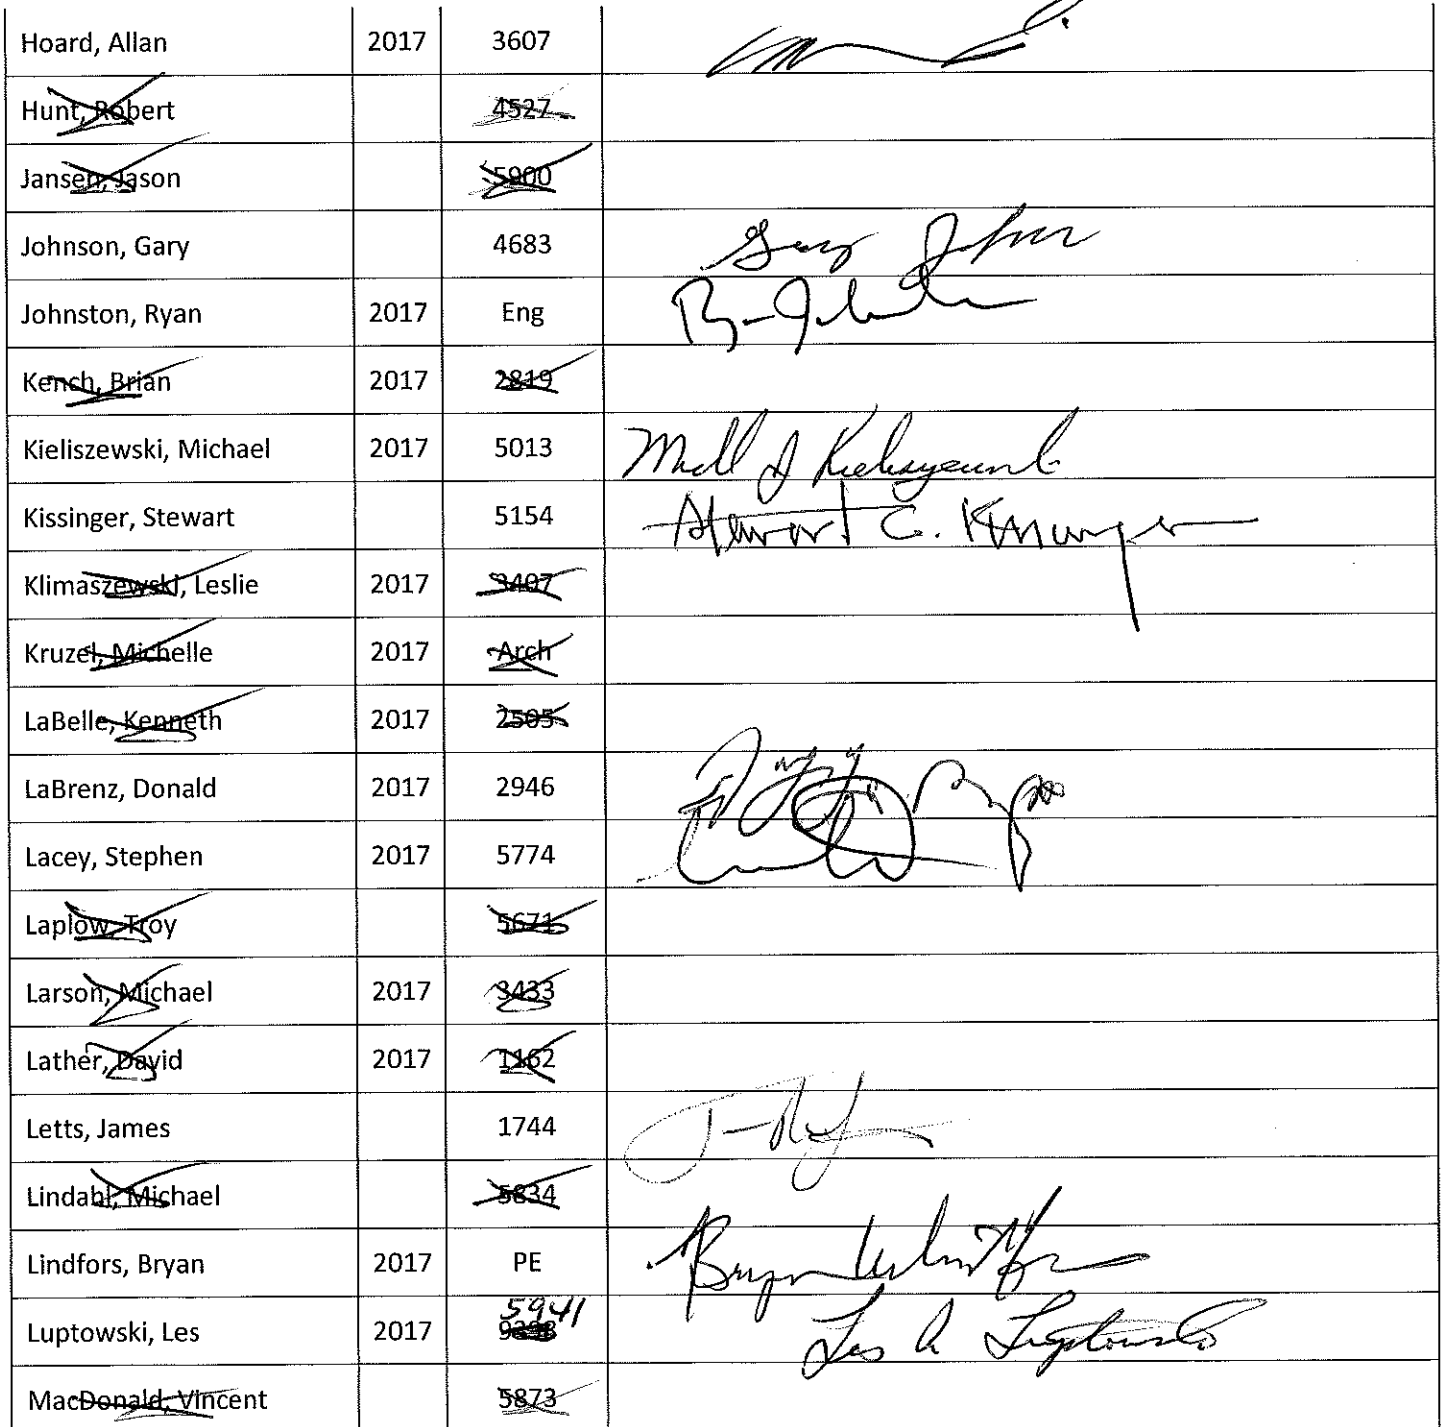 Hoard, Allan 2017 3607
Hunt, Robert 4527
Jansen, Jason 5900
Johnson, Gary 4683 Gary Johnson
Johnston, Ryan 2017 Eng
Kench, Brian 2017 2819
Kieliszewski, Michael 2017 5013
Kissinger, Stewart 5154 Stewart C. Kissinger
Klimaszewski, Leslie 2017 3407
Kruzel, Michelle 2017 Arch
LaBelle, Kenneth 2017 2505
LaBrenz, Donald 2017 2946
Lacey, Stephen 2017 5774
Laplow, Troy 5671
Larson, Michael 2017 3433
Lather, David 2017 1162
Letts, James 1744
Lindahl, Michael 5834
Lindfors, Bryan 2017 PE Bryan
5941
Luptowski, Les 2017 Les A Luptowski
MacDonald, Vincent 5873